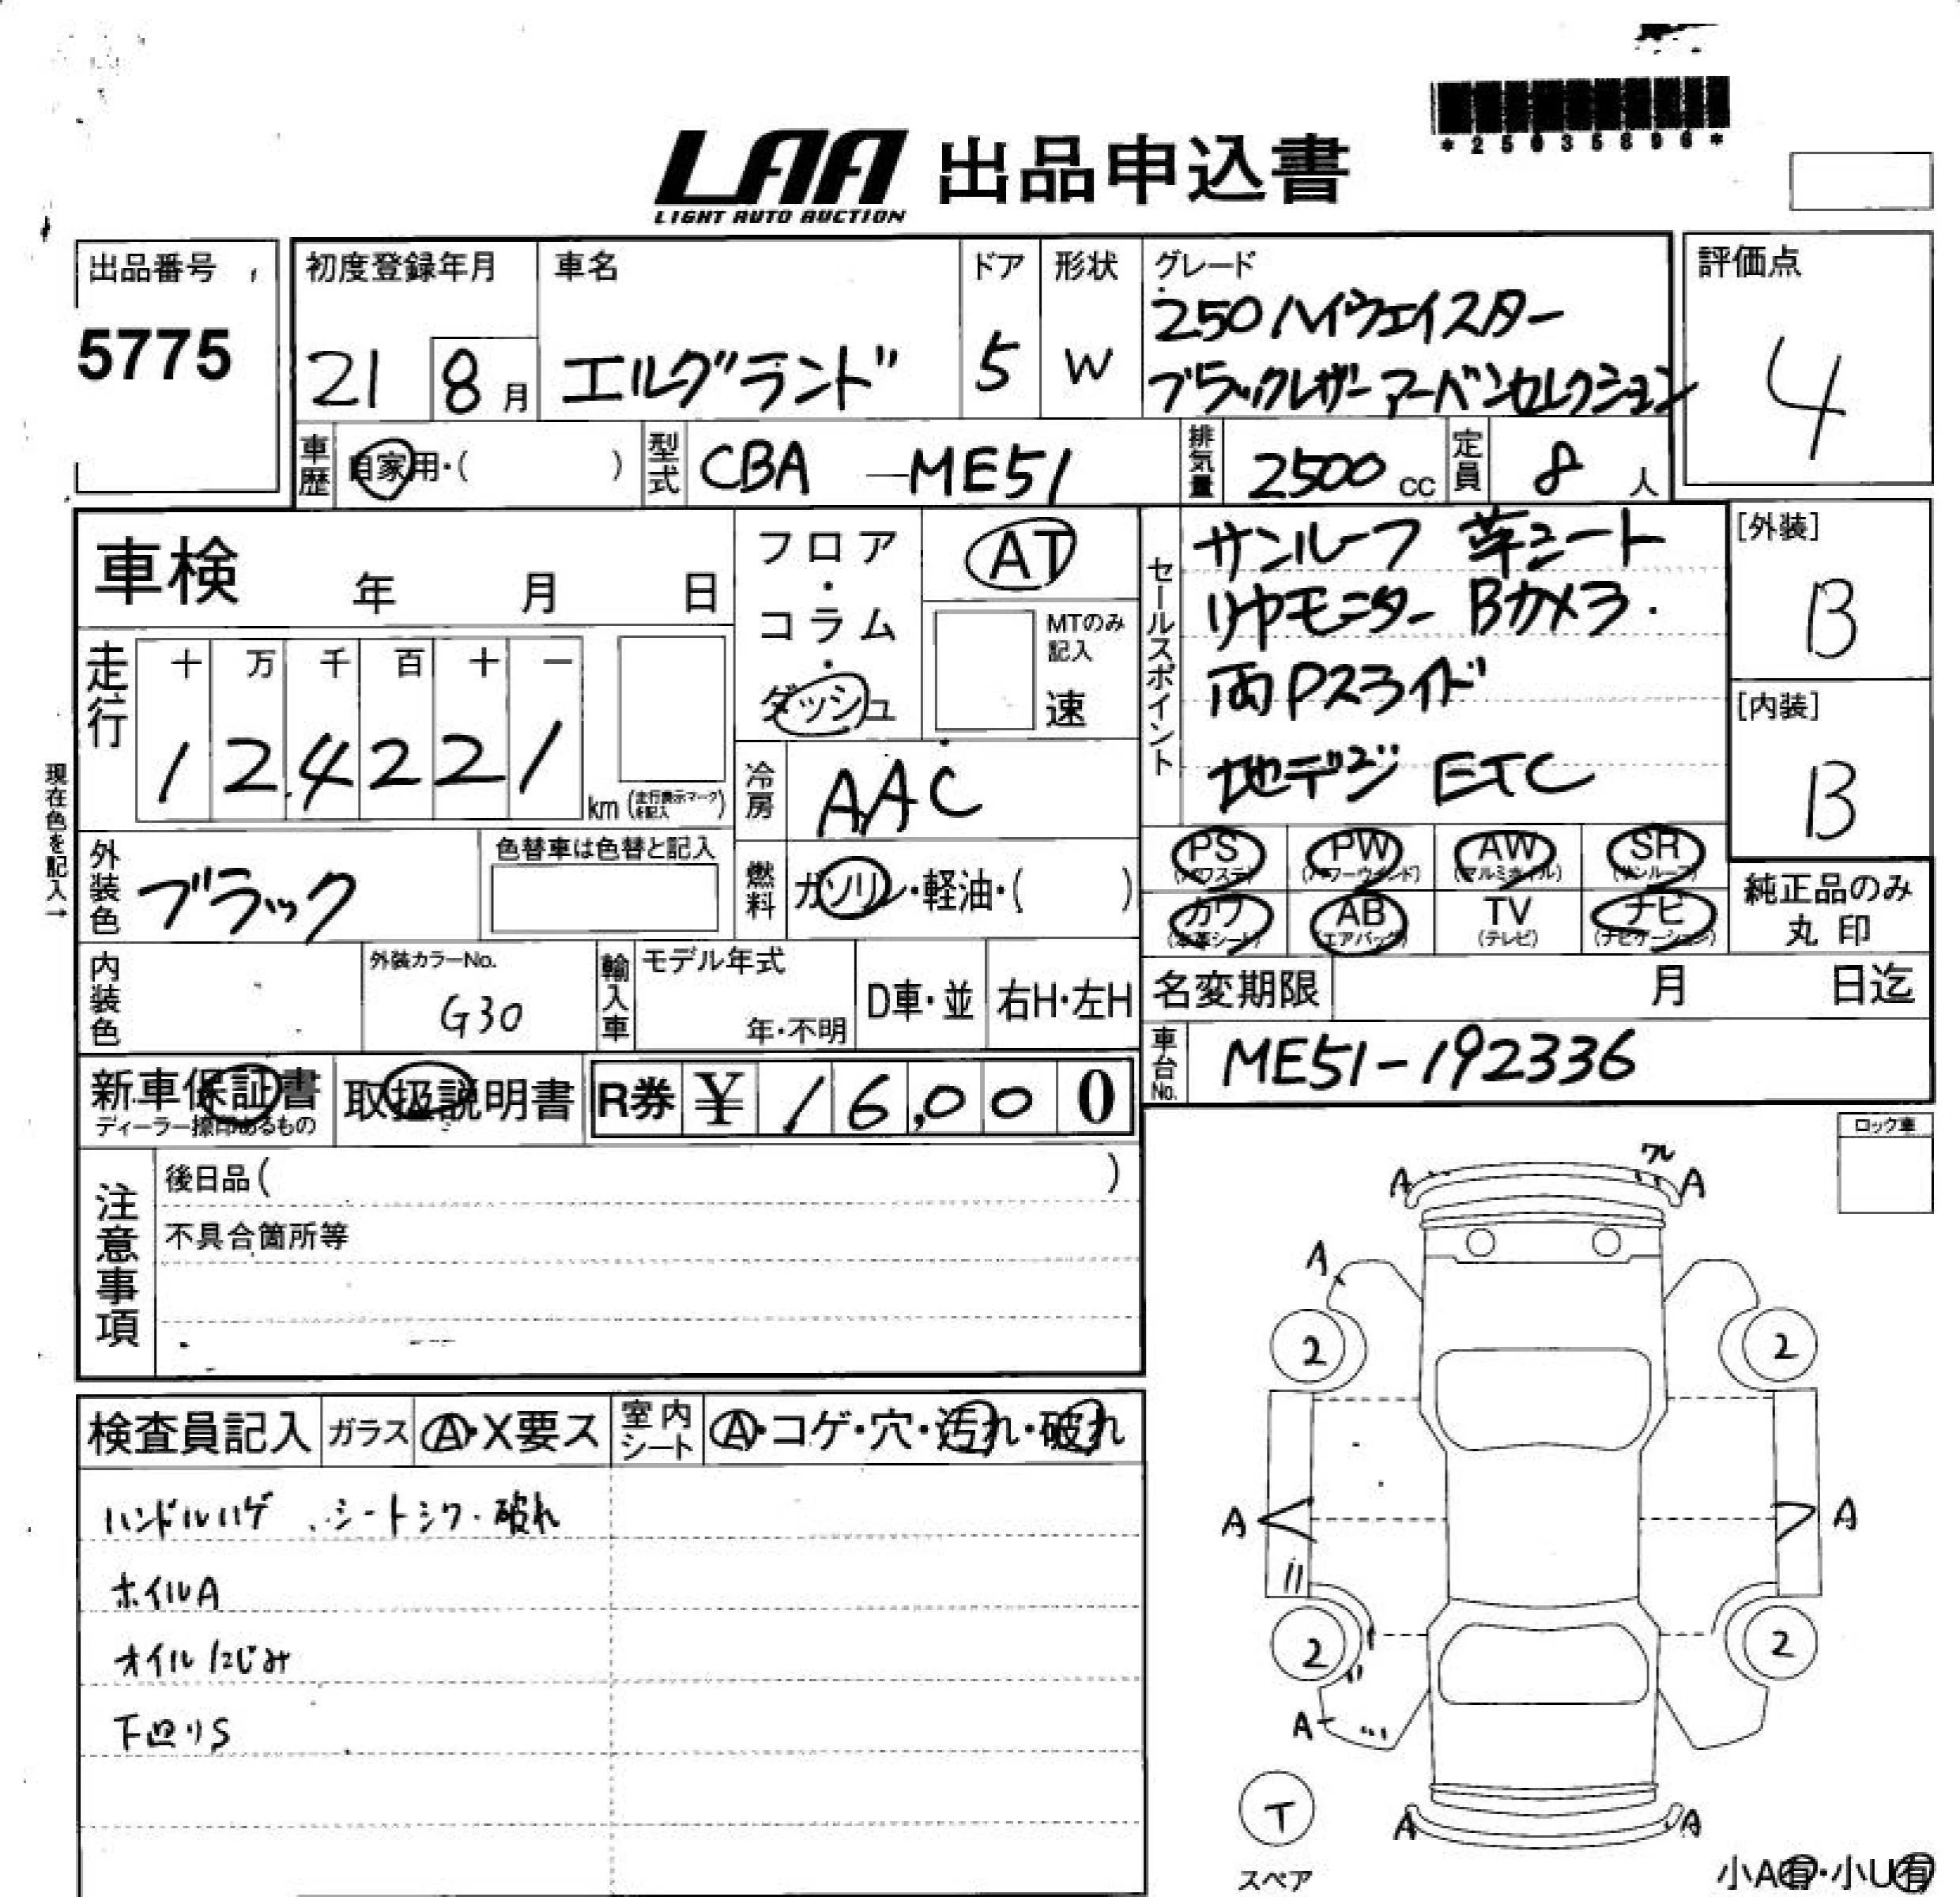 *25035896*
LAA 出品申込書
LIGHT AUTO AUCTION
出品番号
5775
初度登録年月
21 8月
車名
エルグランド
ドア
5
形状
W
グレード
250ハイウェイスター
ブラックレザーアーバンセレクション
評価点
4
車歴
自家用・( )
型式
CBA-ME51
排気量
2500cc
定員
8人
車検 年 月 日
フロア・コラム・ダッシュ
AT
MTのみ記入
速
セールスポイント
サンルーフ 革シート
リヤモニター Bカメラ.
両Pスライド
地デジ ETC
[外装]
B
[内装]
B
走行
十 万 千 百 十 一
1 2 4 2 2 1 km (走行表示マークを記入)
冷房
AAC
現在色を記入→
外装色
ブラック
色替車は色替と記入
燃料
ガソリン・軽油・( )
PS (パワステ)
PW (パワーウインド)
AW (アルミホイル)
SR (サンルーフ)
カワ (本革シート)
AB (エアバッグ)
TV (テレビ)
ナビ (ナビゲーション)
純正品のみ
丸印
内装色
外装カラーNo.
G30
輸入車
モデル年式
年・不明
D車・並
右H・左H
名変期限 月 日迄
車台No.
ME51-192336
新車保証書
ディーラー捺印あるもの
取扱説明書
R券 ¥16,000
注意事項
後日品( )
不具合箇所等
ロック車
検査員記入
ガラス A・X要ス
室内シート A・コゲ・穴・汚れ・破れ
ハンドルハゲ、シートシワ・破れ
ホイルA
オイルにじみ
下回りS
ワレ
A A
A
2 2
A A
2 2
A
A A
T
スペア
小A有・小U有